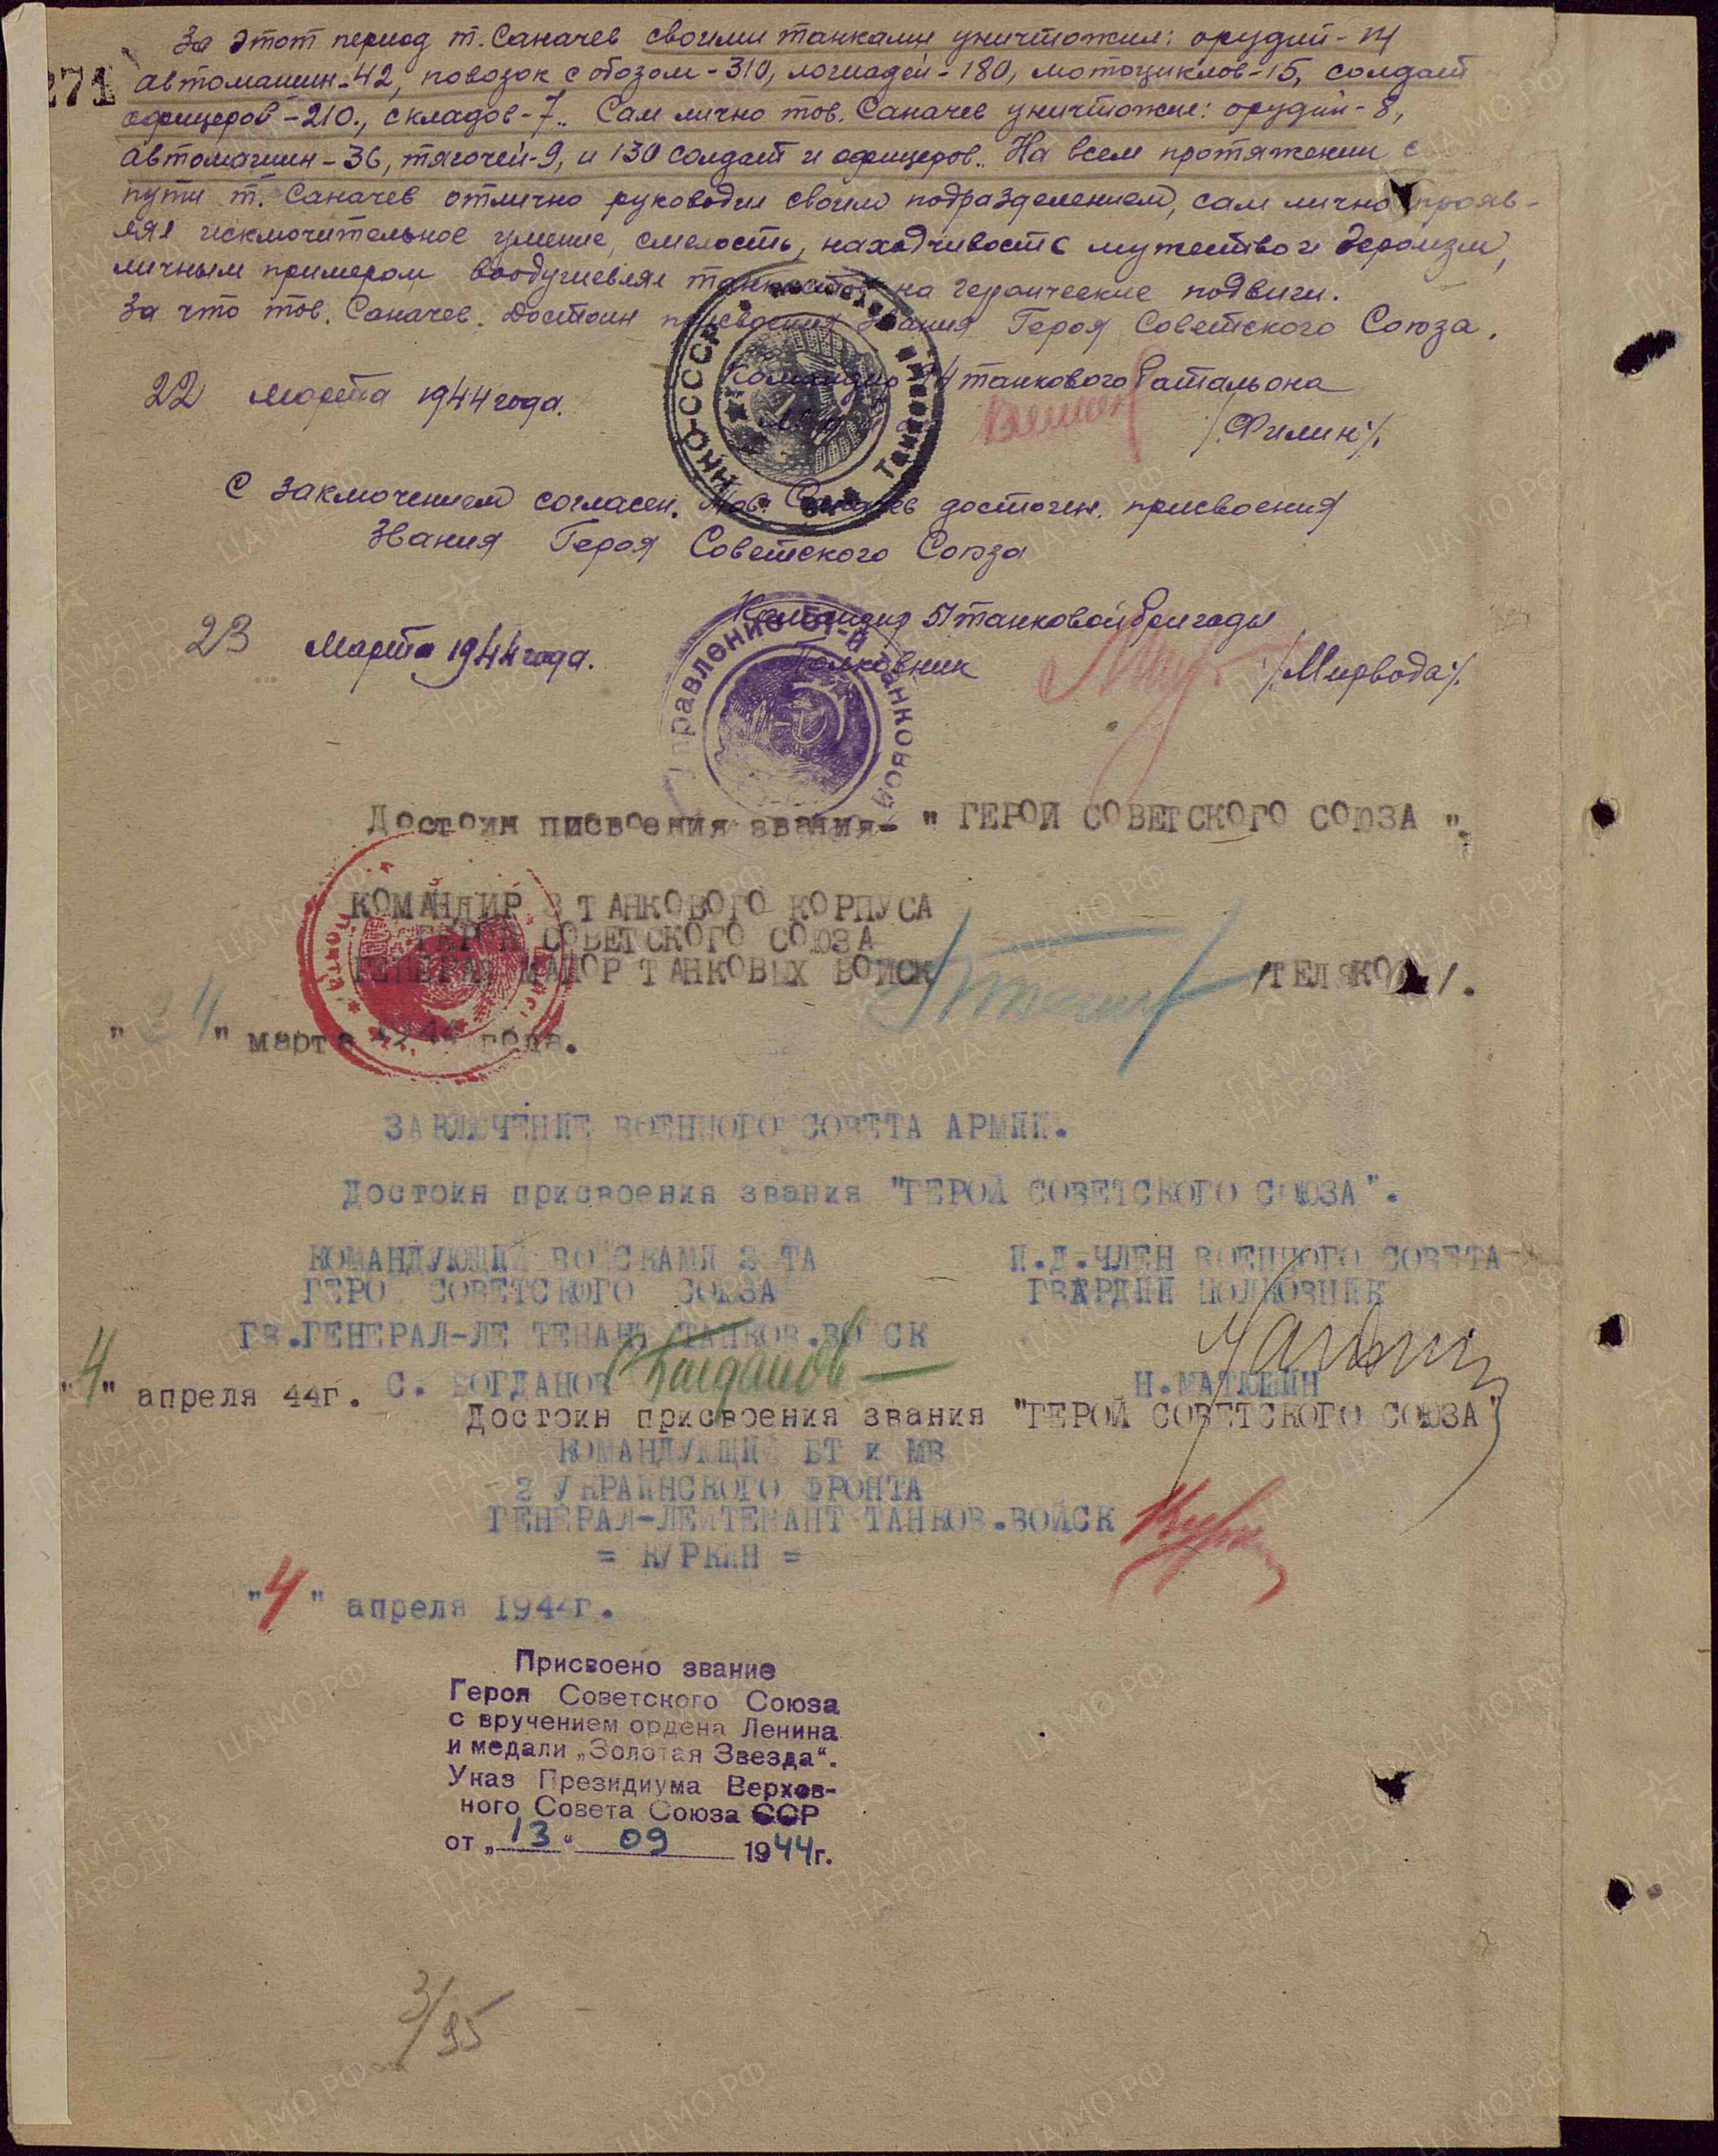 За этот период т. Саначев своими танками уничтожил: орудий-14
271
автомашин-42, повозок с обозом-310, лошадей-180, мотоциклов-15, солдат
офицеров-210., складов-7.. Сам лично тов. Саначев уничтожил: орудий-8,
автомашин-36, тягочей-9, и 130 солдат и офицеров.. На всем протяжении
пути т. Саначев отлично руководил своим подразделением, сам лично прояв-
лял исключительное умение, смелость, находчивость мужество и героизм,
личным примером воодушевлял танкистов на героические подвиги.
За что тов. Саначев. Достоин присвоения звания Героя Советского Союза.
Командир танкового батальона
22 марта 1944 года.
/Филин/.
С заключением согласен. Тов. Саначев достоин. присвоения
Звания Героя Советского Союза
Командир 51 танковой бригады
23 Марта 1944 года. Полковник /Мирвода/.
Управление 51-й танковой
Достоин писвоения звания- " ГЕРОЙ СОВЕТСКОГО СОЮЗА ".
КОМАНДИР 3 ТАНКОВОГО КОРПУСА
ГЕРОЙ СОВЕТСКОГО СОЮЗА
ГЕНЕРАЛ МАЙОР ТАНКОВЫХ ВОЙСК /ТЕЛЯКОВ/.
"24" марта 1944 года.
ЗАКЛЮЧЕНИЕ ВОЕННОГО СОВЕТА АРМИИ.
Достоин присвоения звания "ГЕРОЙ СОВЕТСКОГО СОЮЗА".
КОМАНДУЮЩИЙ ВОЙСКАМИ 2 ТА И.Д.ЧЛЕН ВОЕННОГО СОВЕТА
ГЕРОЙ СОВЕТСКОГО СОЮЗА ГВАРДИИ ПОЛКОВНИК
ГВ.ГЕНЕРАЛ-ЛЕЙТЕНАНТ ТАНКОВ.ВОЙСК
"4" апреля 44г. С. БОГДАНОВ Богданов Н.МАТЮШИН
Достоин присвоения звания "ГЕРОЙ СОВЕТСКОГО СОЮЗА"
КОМАНДУЮЩИЙ БТ и МВ
2 УКРАИНСКОГО ФРОНТА
ГЕНЕРАЛ-ЛЕЙТЕНАНТ ТАНКОВ.ВОЙСК
= КУРКИН =
"4" апреля 1944г.
Присвоено звание
Героя Советского Союза
с вручением ордена Ленина
и медали „Золотая Звезда“.
Указ Президиума Верхов-
ного Совета Союза ССР
от „13“ 09 1944г.
3/95
ЦА МО РФ
ПАМЯТЬ
НАРОДА